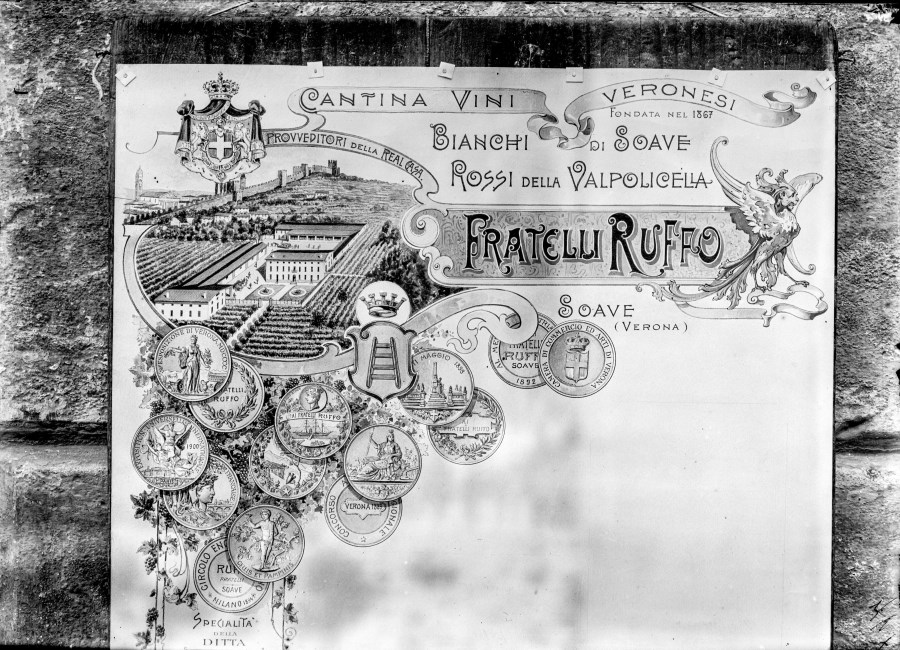 CANTINA VINI VERONESI
FONDATA NEL 1867
PROVVEDITORI DELLA REAL CASA
BIANCHI DI SOAVE
ROSSI DELLA VALPOLICELLA
FRATELLI RUFFO
SOAVE
(VERONA)
FRATELLI
RUFFO
SOAVE
1892
CAMERA DI COMMERCIO ED ARTI DI VERONA
MAGGIO
FRATELLI RUFFO
FRATELLI
RUFFO
1900
CONCORSO
VERONA
CIRCOLO
FRATELLI
SOAVE
MILANO
SPECIALITÀ
DELLA
DITTA